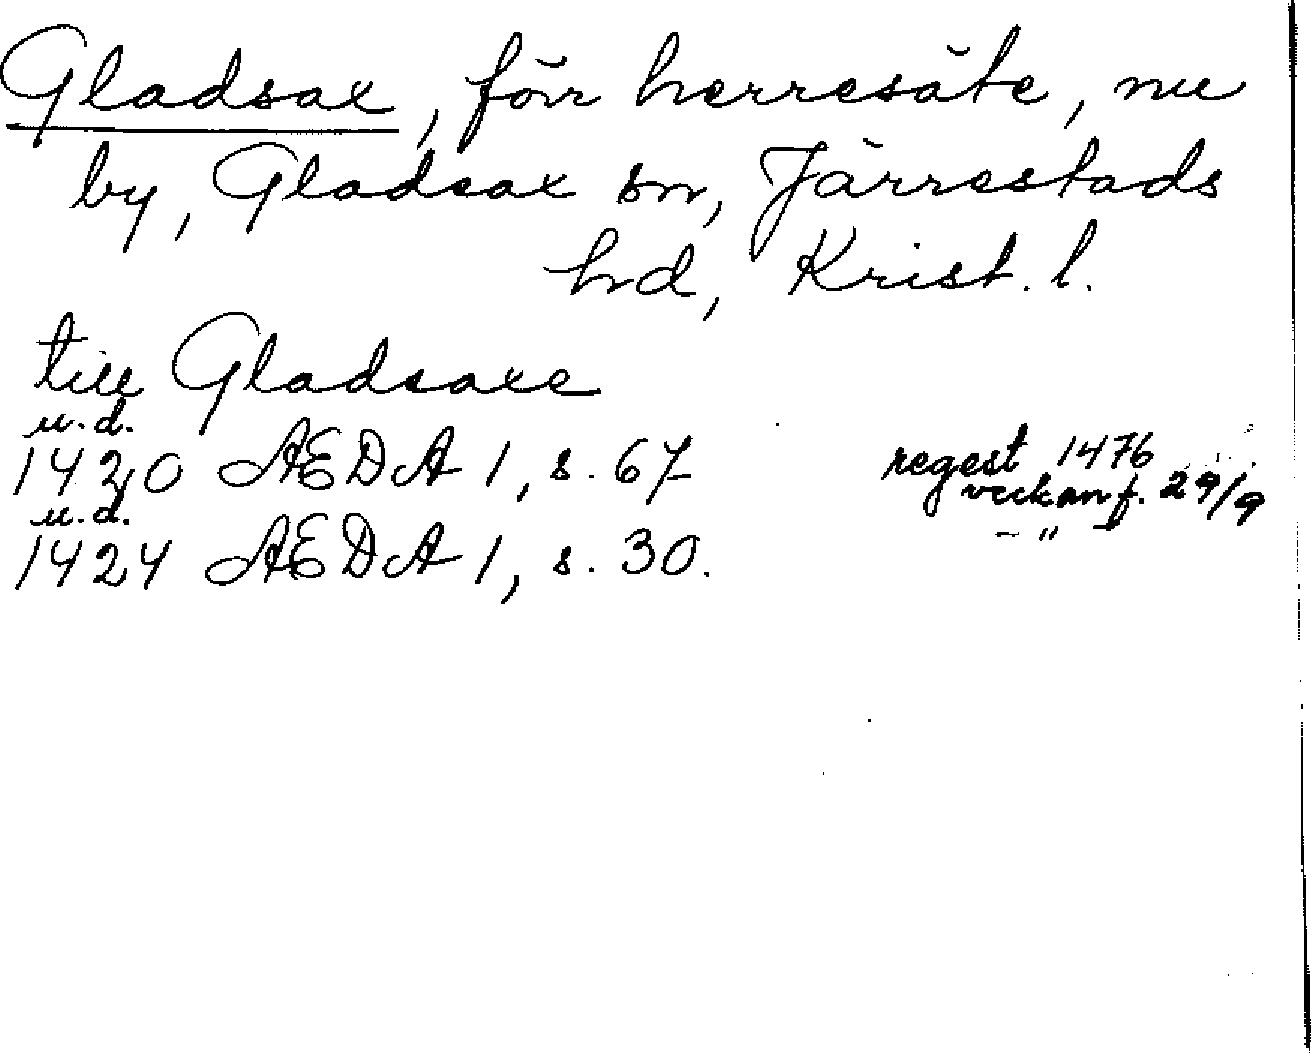 Gladsax, förr herresäte, nu
by, Gladsax sn, Järrestads
hd, Krist. l.
till Gladsaxe
u.d.
1420 AEDA 1, s. 67 regest 1476
veckan f. 29/9
u.d.
1424 AEDA 1, s. 30. – " –